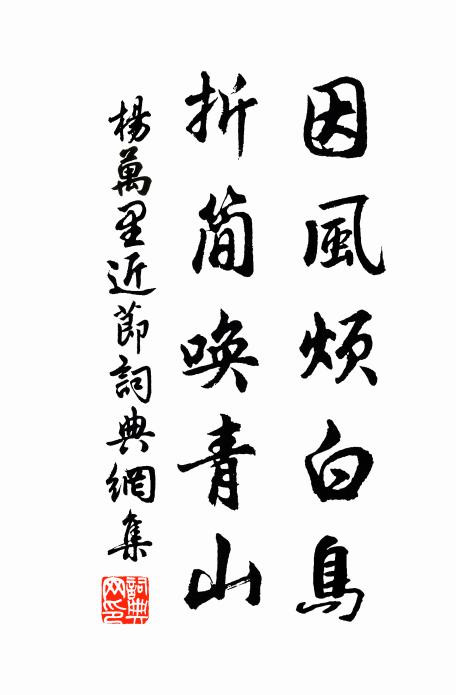 因風煩白鳥
折簡喚青山
楊萬里近節詞典網集
詞典網印